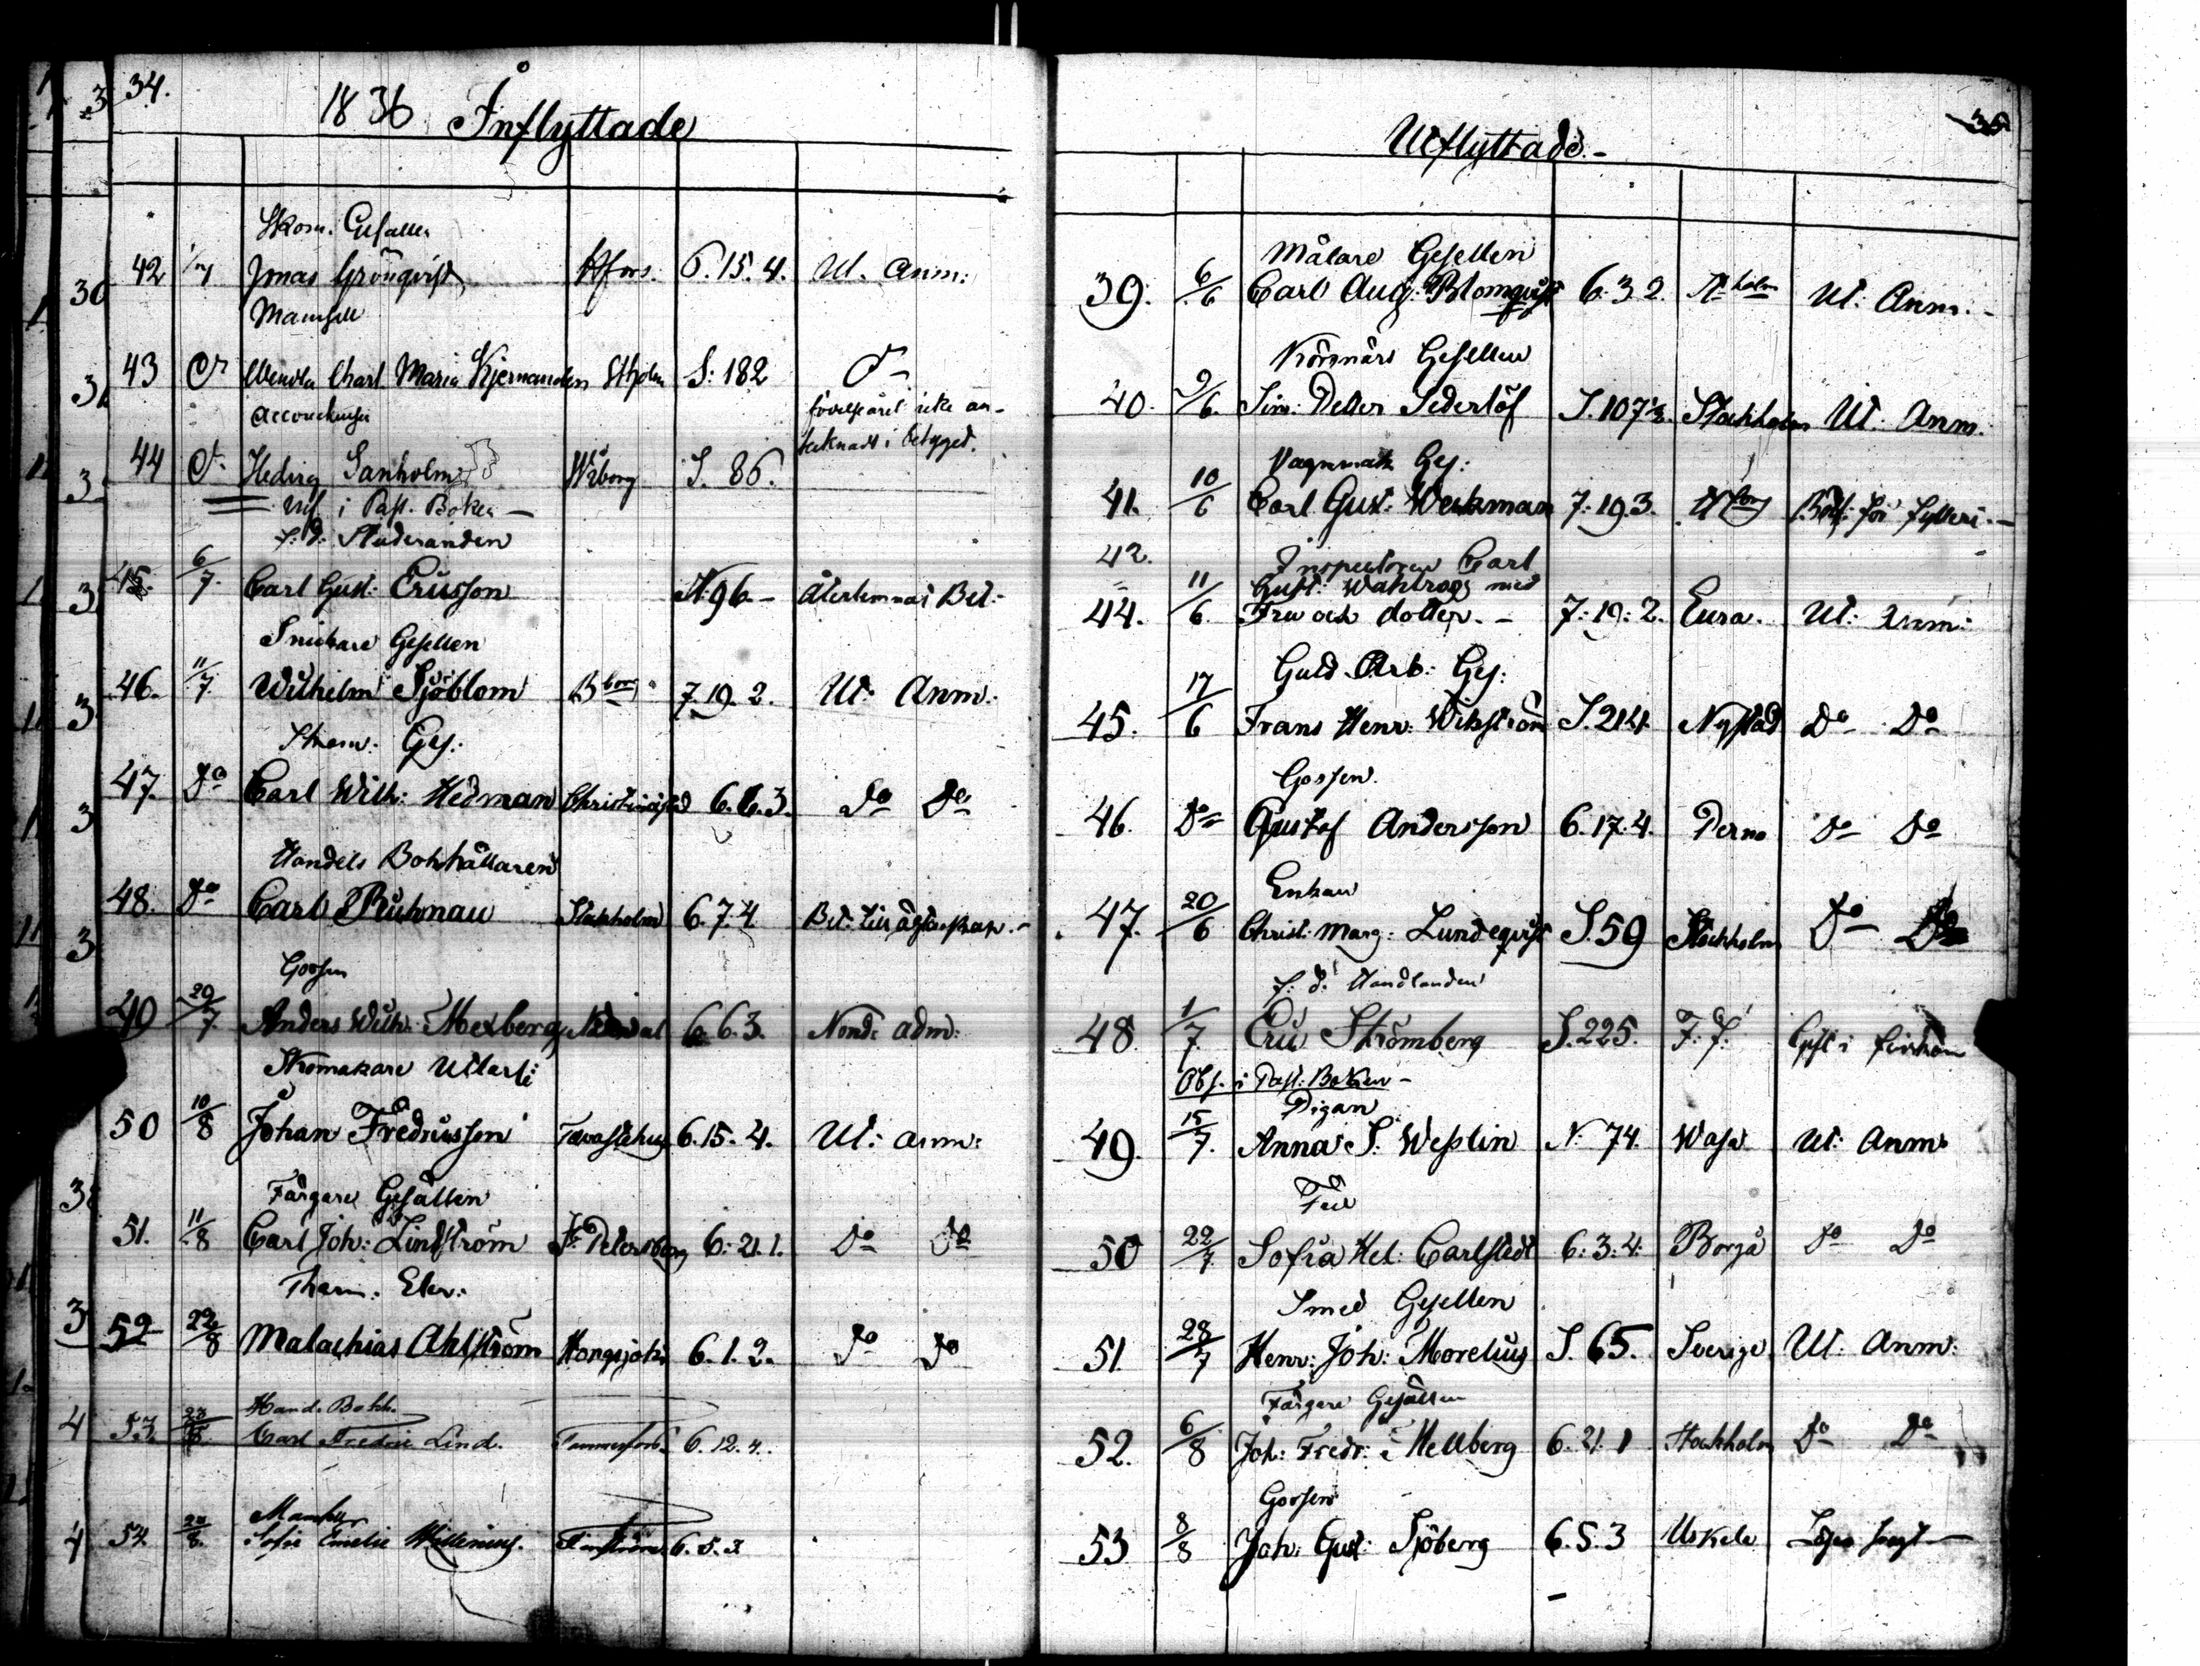 34.
1836 Inflyttade
Skom. Gesallen
42 1/7 Jonas Grönqvist Hfors. 6.15.4. Ut. Anm:
Mamsell
43 Charl Maria Kjernander Stholm S: 182
Accoucheuse icke an-
tecknadt i betyget.
44 Hedvig Sanholm Wiborg S. 86.
i Past. Boken —
f. d. Studeranden
45. 6/7. Carl Gust: Ericsson N.96.- Återlemnat Bet.
Snickare Gesellen
46. 11/7 Wilhelm Sjöblom Bborg 7.19.2. Ut: Anm.
Ges.
47. Do Carl Wilh: Hedman Christinestad 6.6.3. Do Do
Handels Bokhållaren
48. Do Carl Ruhnau Stockholm 6.7.4 Bet. till äktenskap.-
Gossen
49 20/7. Anders Wilh. Mexberg Nådendal 6.6.3. Nond. adm:
Skomakare
50 10/8 Johan Fredriksson Tavastehus 6.15.4. Ut: anm:
Färgare Gesällen
51. 11/8 Carl Joh: Lindström St Petersborg 6:21.1. Do Do
Elev.
52 22/8 Malachias Ahlström Kongsjoki 6.1.2. Do Do
Hand. Bokh.
53. 23/8 Carl Fredric Lind. Tammerfors 6.12.4.
Mamsell
54. 8. Sofie Emelie Willenius. 6.5.3
Utflyttade.-
35
Målare Gesellen
39. 6/6 Carl Aug: Blomqvist 6.3.2. Stholm Ut: Anm.-
Körsnärs Gesellen
40. 9/6. Sim: Petter Sederlöf S.107½. Stockholm Ut. Anm.
Vagnmak. Ges:
41. 10/6 Carl Gust: Werkman 7.19.3. för fylleri.-
42. Inspectoren Carl
Gust: Wahlroos med
44. 11/6. Fru och dotter.- 7:19:2. Eura. Ut: Anm:
Guld. Arb: Ges:
45. 17/6 Frans Henr: Wikström S.214. Nystad Do Do
Gossen.
46. Do Gustaf Andersson 6.17.4. Perno Do Do
Enkan
47. 20/6 Christ: Marg: Lundeqvist S.59 Stockholm Do Do
f: d: Handlanden
48 1/7. Eric Strömberg S.225.
Obs. i Past: Boken -
Pigan
49. 15/7. Anna S: Wesslin N: 74. Wasa Ut: Anm.
Fru
50 22/7. Sofia Hel: Carlstedt 6:3:4: Borgå Do Do
Smed Gesellen
51 28/7 Henr: Joh: Morelius S.65. Sverige Ut: Anm:
Färgare Gesällen
52. 6/8 Joh: Fredr: Hellberg 6.21.1 Stockholm Do Do
Gossen
53 8/8 Joh: Gust: Sjöberg 6.5.3 Uskela